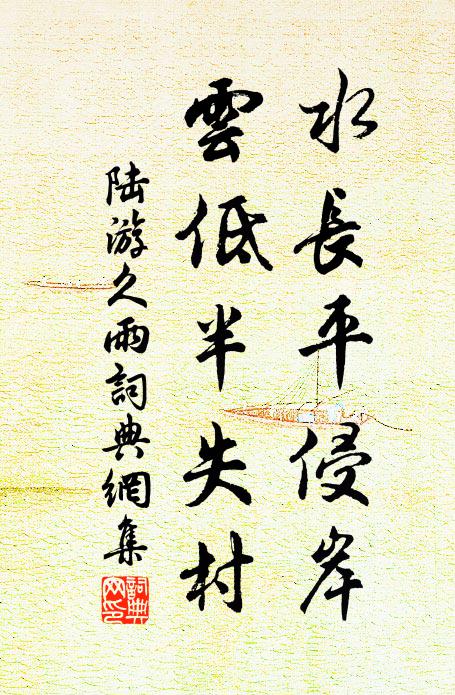 水長平侵岸
雲低半失村
陸游久雨詞典網集
詞典
网印